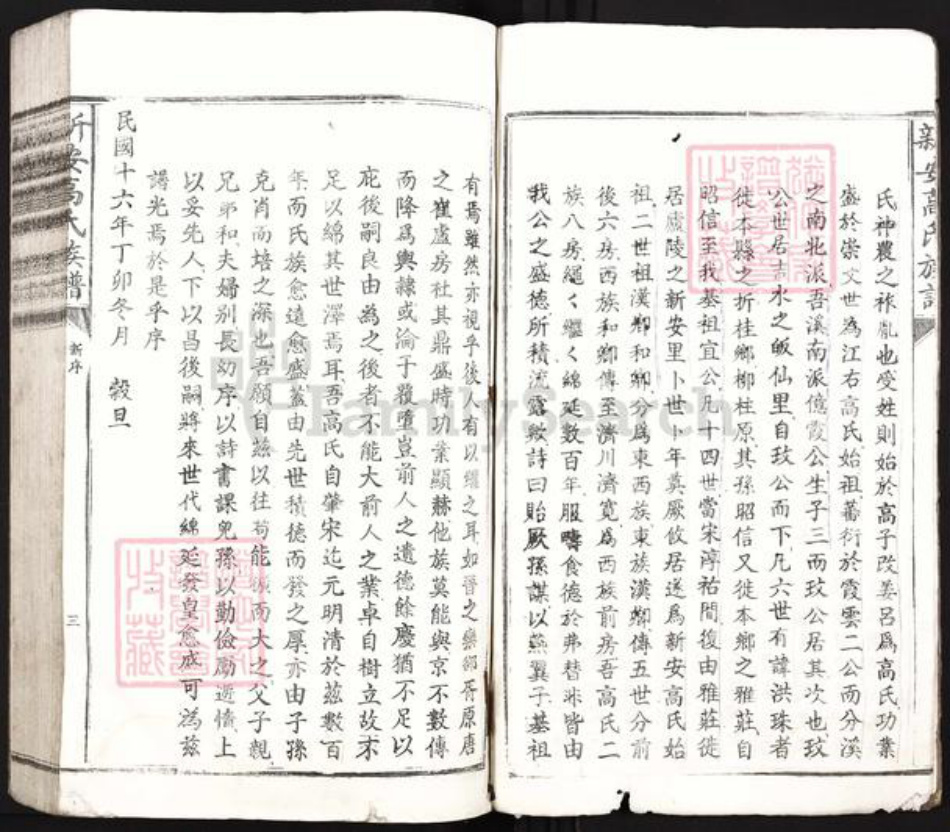 新安高氏族譜
氏神農之祚胤也受姓則始於高子改姜呂爲高氏功業
盛於崇文世為江右高氏始祖蕃衍於霞雲二公而分溪
之南北派吾溪南派億霞公生子三而玟公居其次也玟
公世居吉水之皈仙里自玟公而下凡六世有諱洪珠者
徙本縣之折桂鄉柳柱原其孫昭信又徙本鄉之雅莊自
昭信至我基祖宜公凡十四世當宋淳祐間復由雅莊徙
居廬陵之新安里卜世卜年奠厥攸居遂爲新安高氏始
祖二世祖漢卿和卿分爲東西族東族漢卿傳五世分前
後六房西族和卿傳至濟川濟寬爲西族前房吾高氏二
族八房繩く繼く綿延數百年服疇食德於弗替非皆由
我公之盛德所積流露歟詩曰貽厥孫謀以燕翼子基祖
有焉雖然亦視乎後人有以繼之耳如晉之欒郤胥原唐
之崔盧房杜其鼎盛時功業顯赫他族莫能與京不數傳
而降爲輿隸或淪于覆墮豈前人之遺德餘慶猶不足以
庇後嗣良由為之後者不能大前人之業卓自樹立故不
足以綿其世澤焉耳吾高氏自肇宋迄元明清於茲數百
年而氏族愈遠愈盛蓋由先世積德而發之厚亦由子孫
克肖而培之深也吾願自茲以往苟能擴而大之父子親
兄弟和夫婦別長幼序以詩書課兒孫以勤儉勵遊惰上
以妥先人下以昌後嗣將來世代綿延發皇愈戚可為茲
譜光焉於是乎序
民國十六年丁卯冬月 穀旦
新安高氏族譜
新序
三
FamilySearch